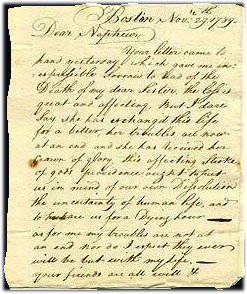 Boston Nov.r 29th 1789.
Dear Nephew,
Your letter came to
hand yesterday, which gave me in-
expressible sorrow to head of the
Death of my dear Sister, the loss is
great and affecting, But I dare
Say she has exchangd this life
for a better, her troubles are now
at an end and she has received her
crown of glory, this affecting stroke
of gods providence ought to put
us in mind of our own Dissolution
the uncertainty of human life, and
to prepare us for a Dying hour —
as for me my troubles are not at
an end nor do I expect they ever
will be but with my life, —
your friends are all well &